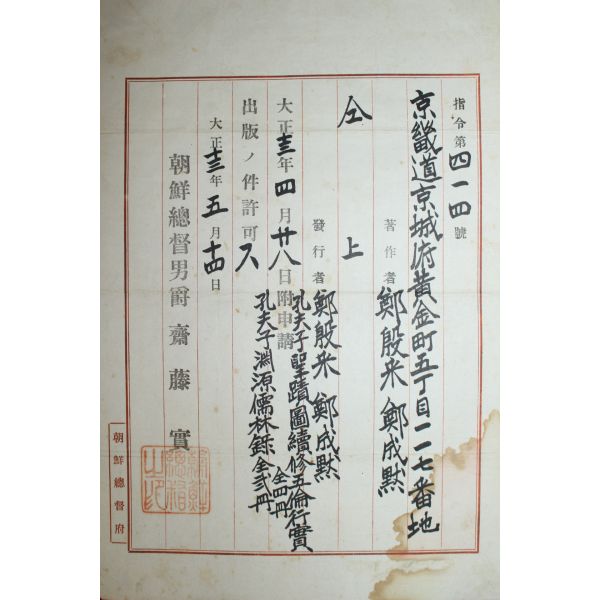 指令第四一四號
京畿道京城府黄金町五丁目一一七番地
著作者 鄭殷采 鄭成默
仝上
發行者 鄭殷采 鄭成默
大正十三年四月廿八日附申請
孔夫子聖蹟圖續修五倫行實 全四冊
孔夫子淵源儒林錄 全弐冊
出版ノ件許可ス
大正十三年五月十四日
朝鮮總督男爵齋藤實
朝鮮總督府